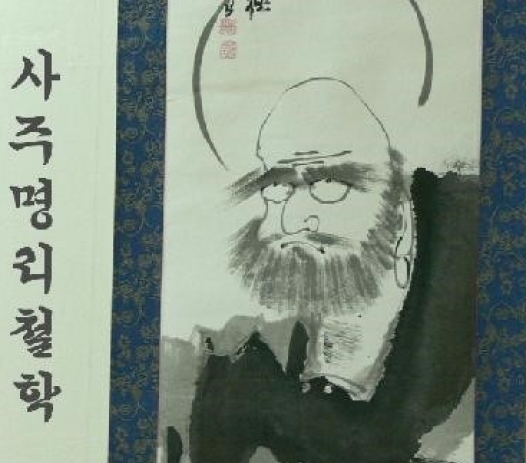 사주명리철학